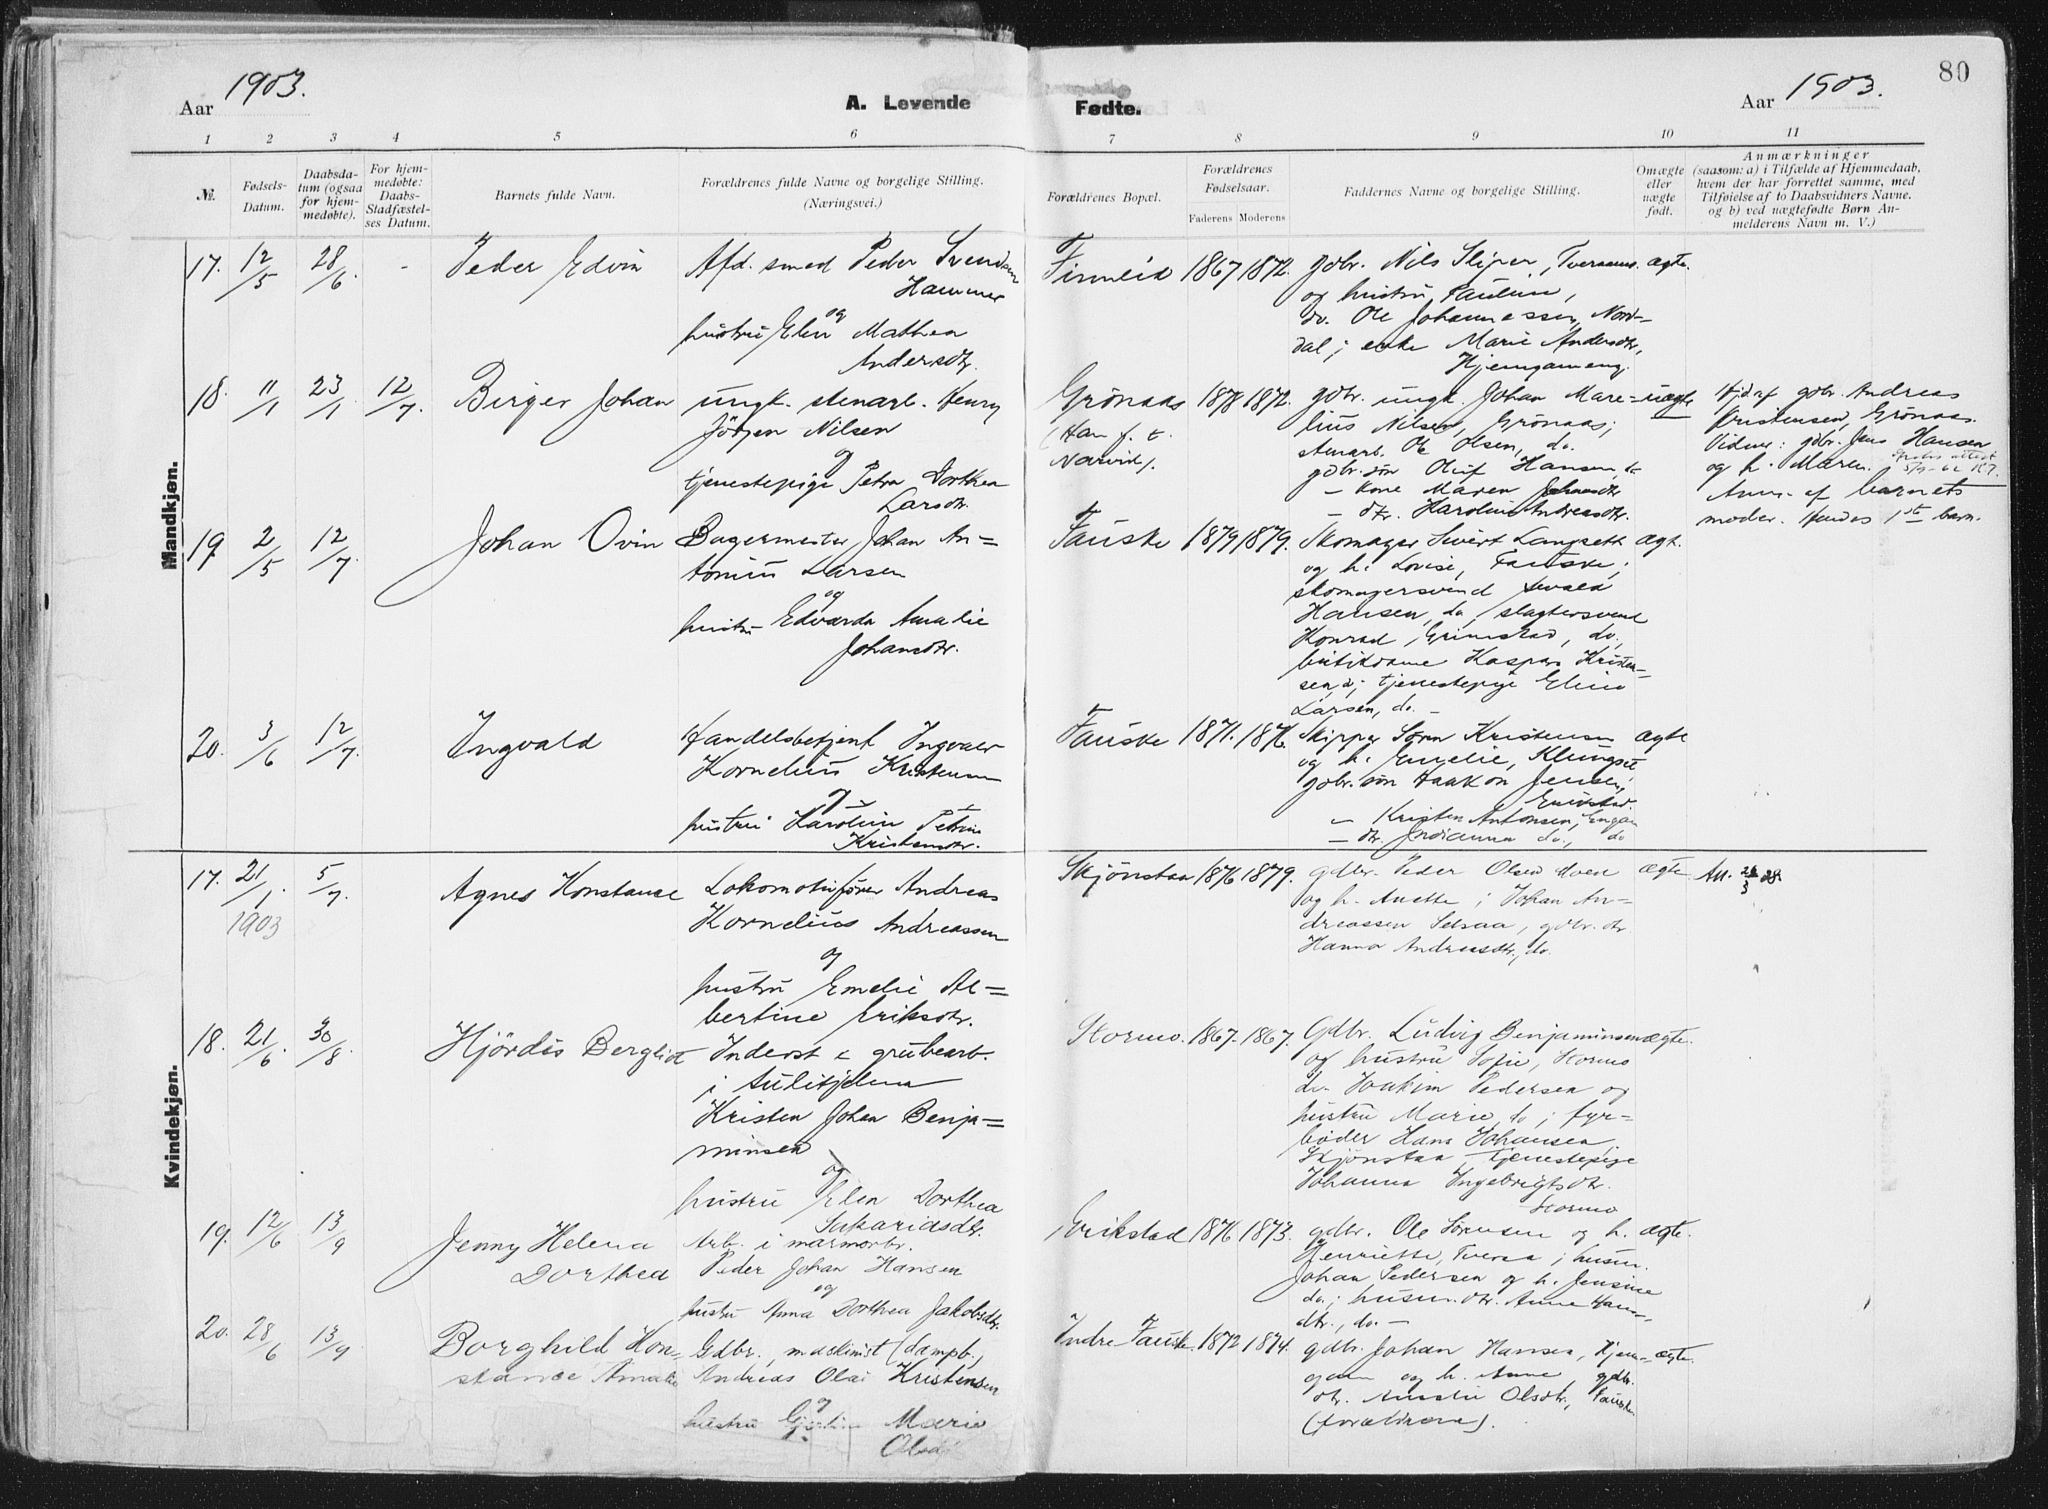 80
Aar 1903.
A. Levende Fødte.
Aar 1903.
1 2 3 4 5 6 7 8 9 10 11
№.
Fødsels-
Datum.
Daabsda-
tum (ogsaa
for hjem-
medøbte).
For hjem-
medøbte:
Daabs-
Stadfæstel-
ses Datum.
Barnets fulde Navn.
Forældrenes fulde Navne og borgelige Stilling.
(Næringsvei.)
Forældrenes Bopæl.
Forældrenes
Fødselsaar.
Faderens Moderens
Faddernes Navne og borgelige Stilling.
Omægte
eller
uægte
født.
Anmærkninger
(saasom: a) i Tilfælde af Hjemmedaab,
hvem der har forrettet samme, med
Tilføielse af to Daabsvidners Navne.
og b) ved uægtefødte Børn An-
melderens Navn m. V.)
Mandkjøn.
17. 12/5 28/6 - Peder Edvin
Afd. smed Peder Svendsen
Hammer
og
hustru Elen Mathea
Andersdtr.
Finneid 1867 1872.
gdbr. Nils Sliper, Tveraaen. ægte.
og hustru Pauline,
do. Ole Johannessen, Nord-
dal; enke Marie Andersdtr,
Hjemgameng.
18. 11/1 23/1 12/7. Birger Johan
ungk. stenarb. Henry
Jörgen Nilsen
og
tjenestepige Petra Dorthea
Larsdtr.
Grönaas 1878 1872.
(Han f. t.
Narvik).
gdbr. ungk. Johan Mare- uægte
lius Nilsen, Grönaas;
stenarb. Ole Olsen, do.
gdbr. søn Oluf Hansen, do
- kone Maren Johansdtr
- dtr. Karoline Andreasdtr.
Hjd af gdbr. Andreas
Kristensen, Grönaas.
Vidner: gdbr. Jens Hansen
og h. Maren.
Anm. af barnets
moder. Hendes 1ste barn.
19 2/5 12/7. Johan Ovin
Bagermester Johan An-
tonius Larsen
og
hustru Edvarda Amalie
Johansdtr.
Fauske 1879 1879.
Skomager Sivert Langsett ægt.
og h. Lovise, Fauske;
skomagersvend
Hansen, do, slagtersvend
Konrad Grimstad, do,
butikdame Kaspara Kristen-
sen, do; tjenestepige Elina
Larsen, do. -
20. 3/6 12/7. Ingvald
Handelsbetjent Ingvald
Kornelius Kristensen
og
hustru Karoline Petrine
Kristensdtr.
Fauske 1871. 1876.
Skipper Sören Kristensen ægte
og h. Emelie, Klungset
gdbr. søn Haakon Jensen,
Erikstad.
- Kristen Antonsen, Engan
- dtr. Indianna do., do
Kvindekjøn.
17. 21/1. 5/7.
1903
Agnes Konstanse
Lokomotivfører Andreas
Kornelius Andreassen
og
hustru Emelie Al-
bertine Eriksdtr.
Skjönstaa 1876 1879.
gdbr. Peder Olsen Moen ægte
og h. Anette; Johan An-
dreassen Setsaa, gdbr. dtr
Hanna Andreasdtr., do.
Att. 28.
18. 21/6. 30/8. Hjördis Bergliot
Inderst & grubearb.
i Sulitjelma
Kristen Johan Benja-
minsen
og
hustru Elen Dorthea
Sakariasdtr.
Stormo. 1867. 1867.
Gdbr. Ludvig Benjaminsen ægte.
og hustru Sofie, Stormo
do. Joakim Pedersen og
hustru Marie do; fyr-
bøder Hans Johansen,
Skjönstaa, tjenestepige
Johanna Ingebrigtsdtr.
Stormo
19. 12/6 13/9 Jenny Helena
Dorthea
Arb. i marmorbr.
Peder Johan Hansen
og
hustru Anna Dorthea Jakobsdtr.
Erikstad 1876 1873.
gdbr. Ole Sörensen og h. ægte.
Henriette, Tveraa; husm.
Johan Pedersen og h. Jensine
do.; husm. dtr. Anne Hans-
dtr., do. -
20. 28/6 13/9 Borghild Kon-
stance Amalie
Gdbr., maskinist (dampb.,
Andreas Olai Kristensen
og
hustru Gjertine Marie
Indre Fauske 1872 1874.
gdbr. Johan Hansen, Hjem- ægte.
gam og h. Anne gdbr.
dtr. Amalie Olsdtr., Fauske
(forældrene).